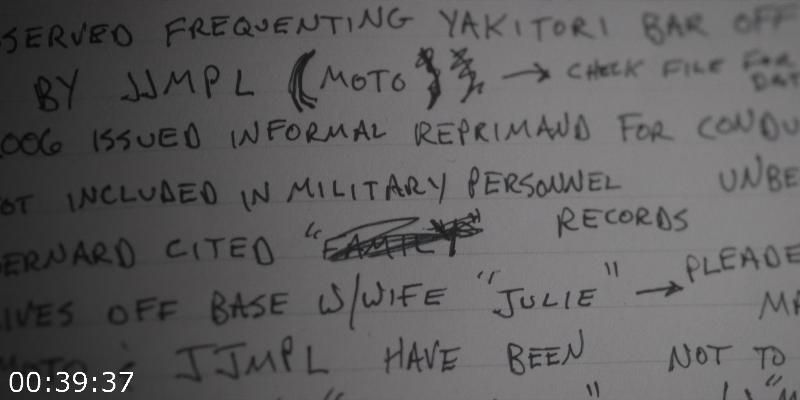 SERVED FREQUENTING YAKITORI BAR OFF
BY JJMPL (MOTO) → CHECK FILE FOR
006 ISSUED INFORMAL REPRIMAND FOR CONDU
OT INCLUDED IN MILITARY PERSONNEL UNBE
ERNARD CITED "FAMILY" RECORDS
IVES OFF BASE W/WIFE "JULIE" → PLEADE
MA
MOTO & JJMPL HAVE BEEN NOT TO
00:39:37